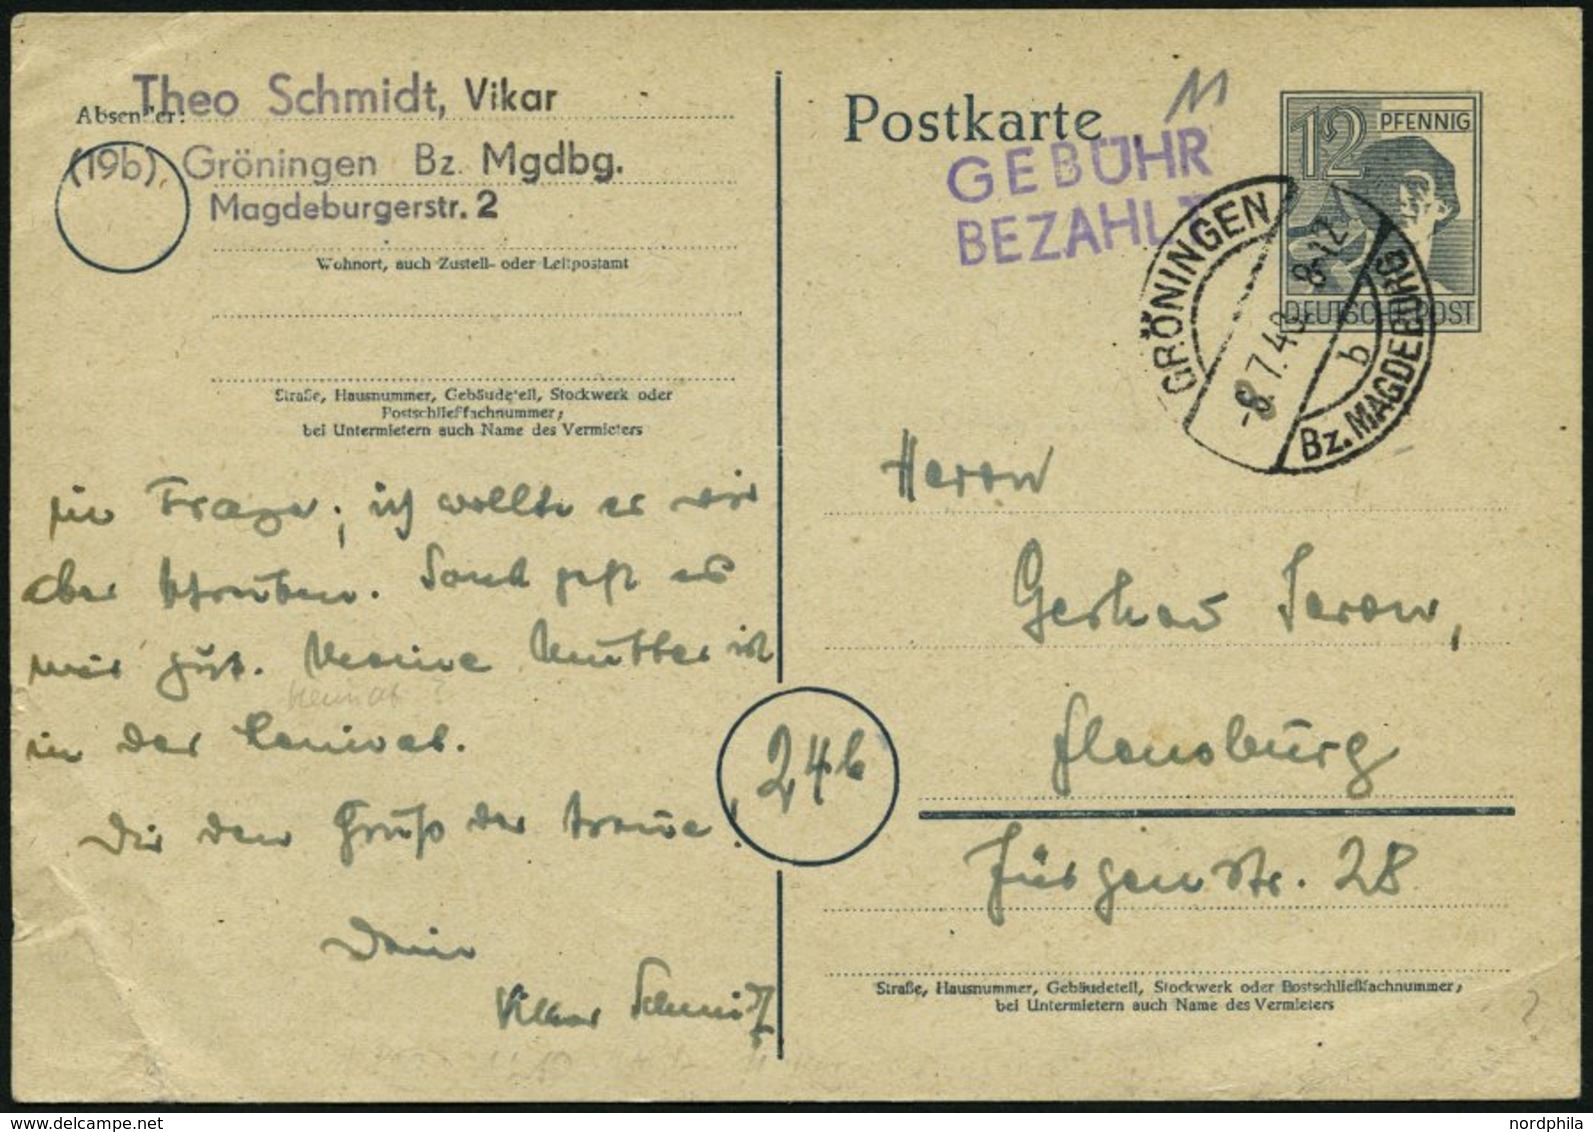 Absender:
Theo Schmidt, Vikar
(19b) Gröningen Bz. Mgdbg.
Magdeburgerstr. 2
Wohnort, auch Zustell- oder Leitpostamt
Straße, Hausnummer, Gebäudeteil, Stockwerk oder
Postschließfachnummer;
bei Untermietern auch Name des Vermieters
in Frage; ich wollte es wir
aber schreiben. Sonst geht es
mir gut. Meine Mutter ist
Heimat ?
in der
Dir den Gruß der Treue!
Dein
Vikar Schmidt
Postkarte
GEBÜHR
BEZAHLT
12 PFENNIG
DEUTSCHE POST
GRÖNINGEN
-8.7.48 8-12
b
Bz. MAGDEBURG
Herrn
Gerhard Sarow,
24b
Flensburg
Jürgenstr. 28
Straße, Hausnummer, Gebäudeteil, Stockwerk oder Postschließfachnummer;
bei Untermietern auch Name des Vermieters
?
nordphila